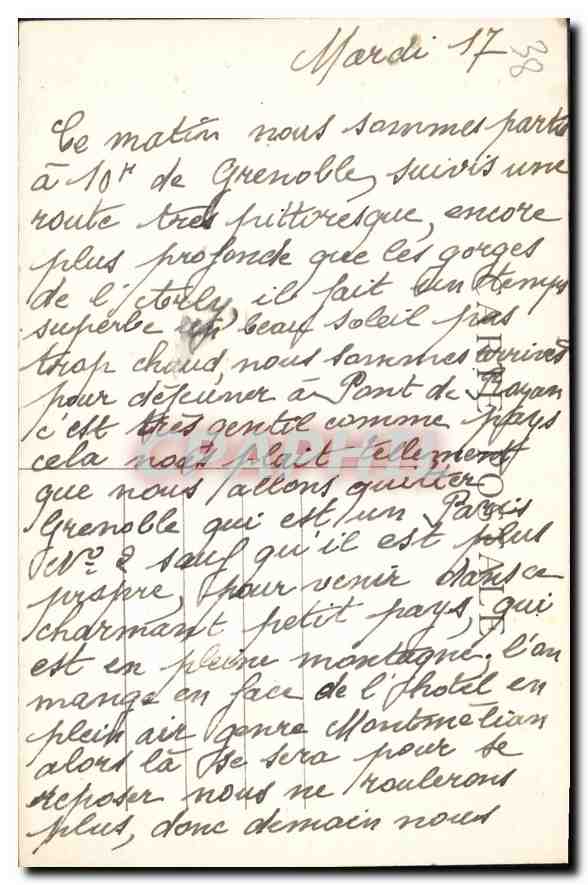 Mardi 17
38
Ce matin nous sommes partis
à 10H de Grenoble, suivis une
route très pittoresque, encore
plus profonde que les gorges
de l'Arly, il fait un temps
superbe un beau soleil pas
trop chaud, nous sommes arrivés
pour déjeuner à Pont de Royan
c'est très gentil comme pays
cela nous plait tellement
que nous allons quitter
Grenoble qui est un Paris
No 2 sauf qu'il est plus
propre, pour venir dans ce
charmant petit pays, qui
est en pleine montagne, l'on
mange en face de l'hotel en
plein air genre Montmélian
alors là se sera pour se
reposer nous ne roulerons
plus, donc demain nous
CARTE POSTALE
CPAPHIL